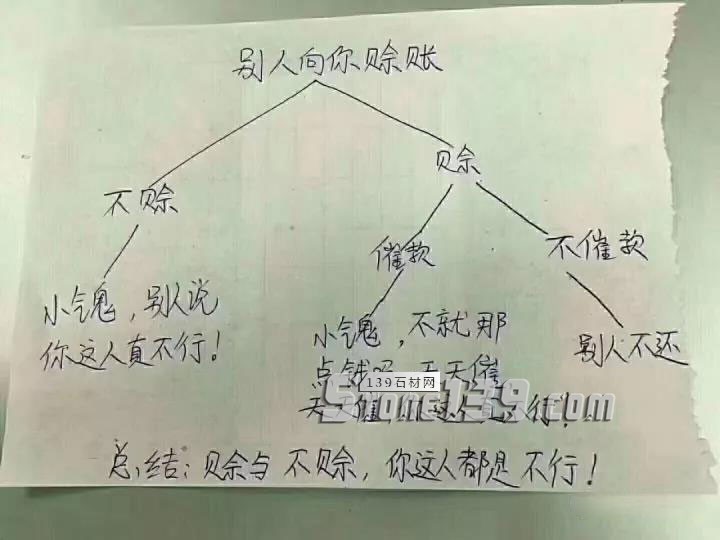 别人向你赊账
不赊
赊
催款
不催款
小气鬼，别人说
你这人真不行！
小气鬼，不就那
点钱吗，天天催
天催
这人
行！
别人不还
139石材网
Stone139.com
总结：赊与不赊，你这人都是不行！